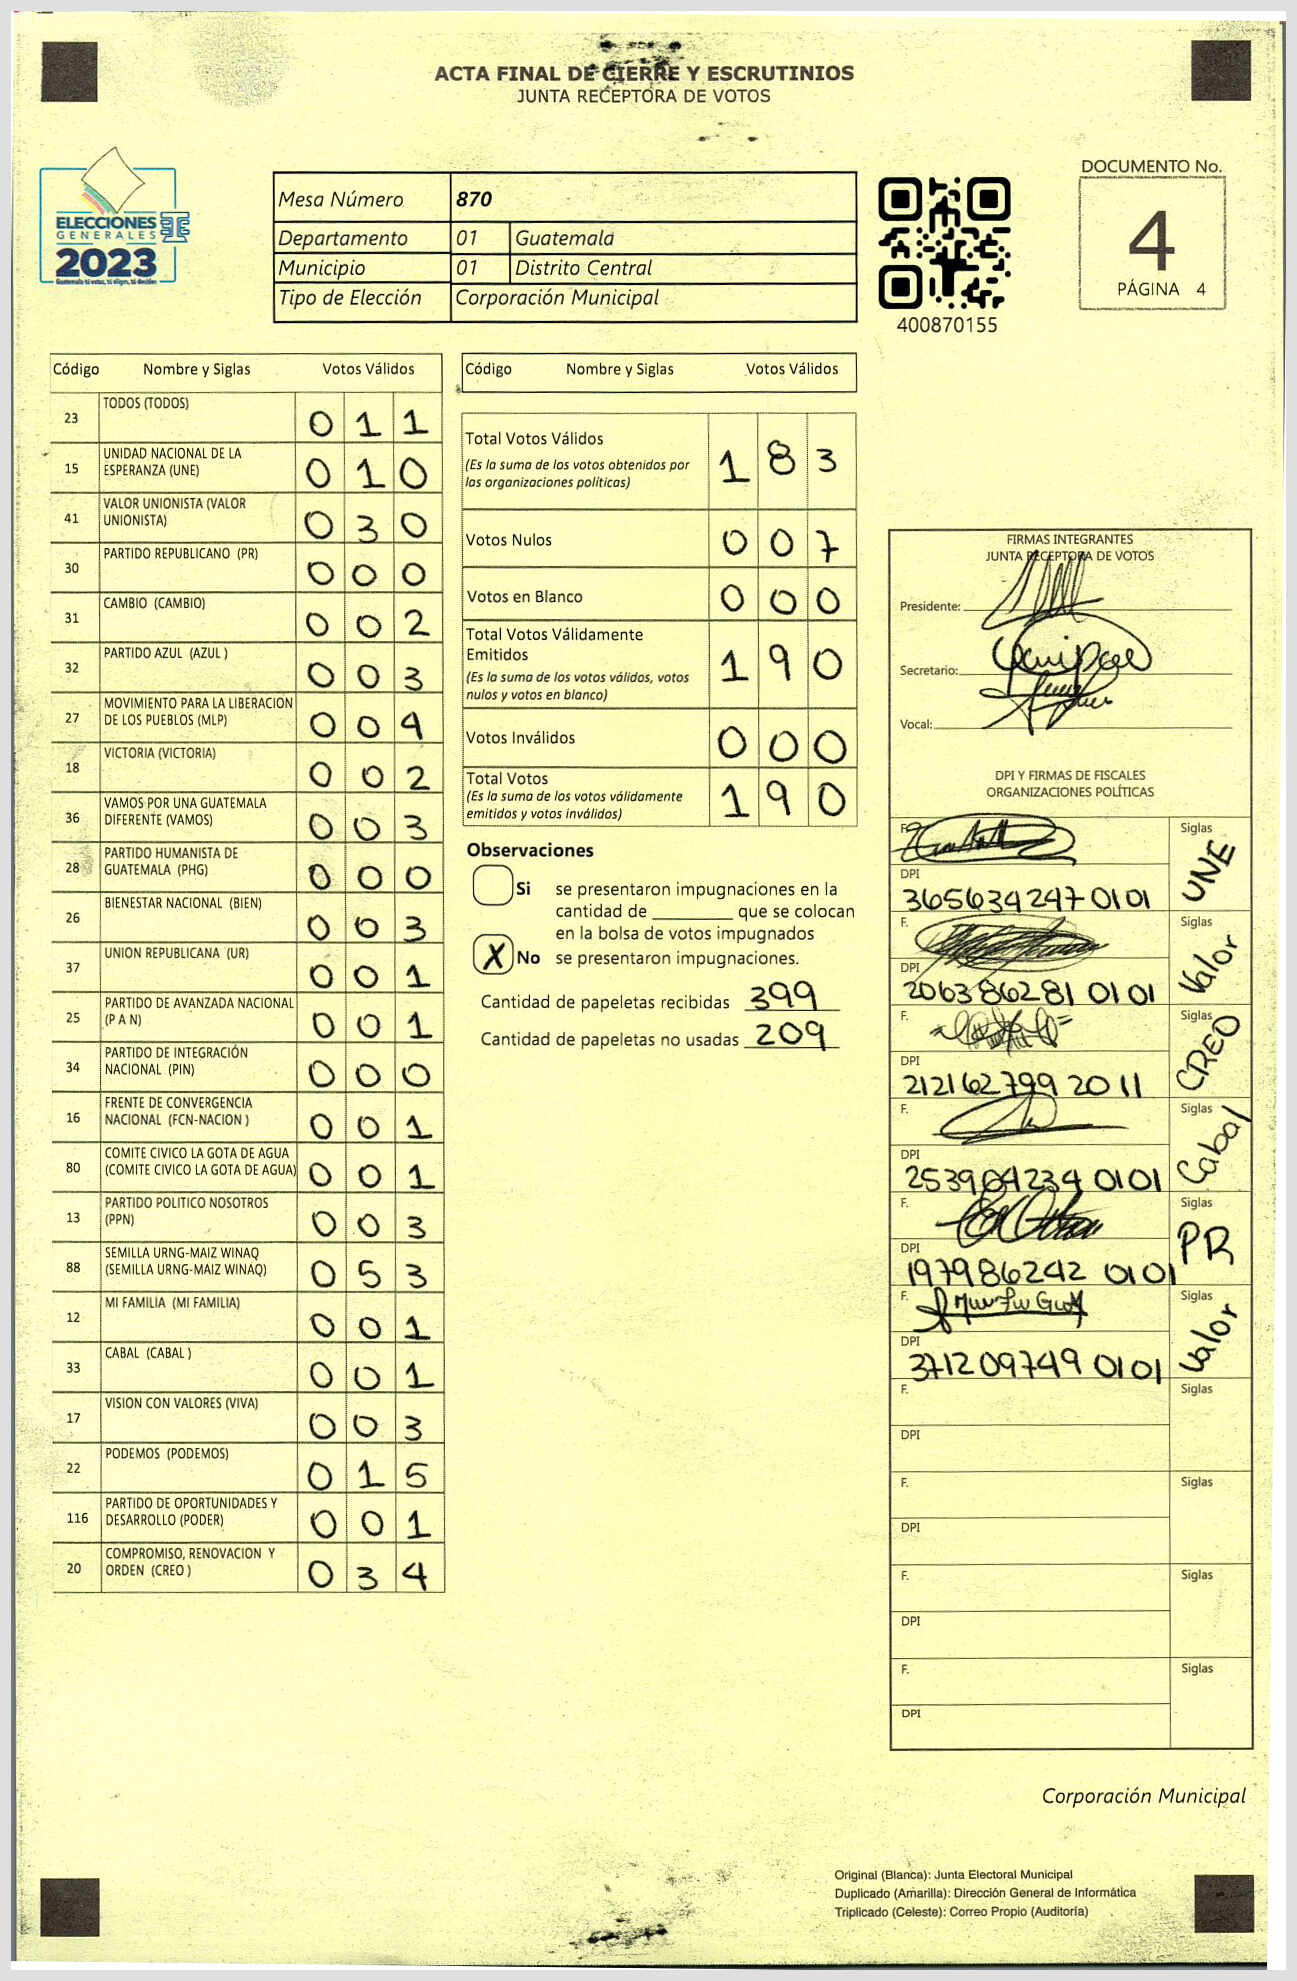 ACTA FINAL DE CIERRE Y ESCRUTINIOS
JUNTA RECEPTORA DE VOTOS
ELECCIONES
GENERALES
2023
Guatemala tú votas, tú eliges, tú decides
Mesa Número 870
Departamento 01 Guatemala
Municipio 01 Distrito Central
Tipo de Elección Corporación Municipal
400870155
DOCUMENTO No.
4
PÁGINA 4
Código Nombre y Siglas Votos Válidos
23 TODOS (TODOS) 0 1 1
15 UNIDAD NACIONAL DE LA ESPERANZA (UNE) 0 1 0
41 VALOR UNIONISTA (VALOR UNIONISTA) 0 3 0
30 PARTIDO REPUBLICANO (PR) 0 0 0
31 CAMBIO (CAMBIO) 0 0 2
32 PARTIDO AZUL (AZUL ) 0 0 3
27 MOVIMIENTO PARA LA LIBERACIÓN DE LOS PUEBLOS (MLP) 0 0 4
18 VICTORIA (VICTORIA) 0 0 2
36 VAMOS POR UNA GUATEMALA DIFERENTE (VAMOS) 0 0 3
28 PARTIDO HUMANISTA DE GUATEMALA (PHG) 0 0 0
26 BIENESTAR NACIONAL (BIEN) 0 0 3
37 UNION REPUBLICANA (UR) 0 0 1
25 PARTIDO DE AVANZADA NACIONAL (P A N) 0 0 1
34 PARTIDO DE INTEGRACIÓN NACIONAL (PIN) 0 0 0
16 FRENTE DE CONVERGENCIA NACIONAL (FCN-NACION ) 0 0 1
80 COMITE CIVICO LA GOTA DE AGUA (COMITE CIVICO LA GOTA DE AGUA) 0 0 1
13 PARTIDO POLITICO NOSOTROS (PPN) 0 0 3
88 SEMILLA URNG-MAIZ WINAQ (SEMILLA URNG-MAIZ WINAQ) 0 5 3
12 MI FAMILIA (MI FAMILIA) 0 0 1
33 CABAL (CABAL ) 0 0 1
17 VISION CON VALORES (VIVA) 0 0 3
22 PODEMOS (PODEMOS) 0 1 5
116 PARTIDO DE OPORTUNIDADES Y DESARROLLO (PODER) 0 0 1
20 COMPROMISO, RENOVACION Y ORDEN (CREO ) 0 3 4
Código Nombre y Siglas Votos Válidos
Total Votos Válidos 1 8 3
(Es la suma de los votos obtenidos por
las organizaciones políticas)
Votos Nulos 0 0 7
Votos en Blanco 0 0 0
Total Votos Válidamente
Emitidos 1 9 0
(Es la suma de los votos válidos, votos
nulos y votos en blanco)
Votos Inválidos 0 0 0
Total Votos 1 9 0
(Es la suma de los votos válidamente
emitidos y votos inválidos)
Observaciones
Si se presentaron impugnaciones en la
cantidad de ________ que se colocan
en la bolsa de votos impugnados
X No se presentaron impugnaciones.
Cantidad de papeletas recibidas 399
Cantidad de papeletas no usadas 209
FIRMAS INTEGRANTES
JUNTA RECEPTORA DE VOTOS
Presidente:
Secretario:
Vocal:
DPI Y FIRMAS DE FISCALES
ORGANIZACIONES POLÍTICAS
F. Siglas UNE
DPI 365634247 0101
F. Siglas Valor
DPI 206386281 0101
F. Siglas CREO
DPI 212162799 2011
F. Siglas Cabal
DPI 253904234 0101
F. Siglas PR
DPI 197986242 0101
F. Siglas Valor
DPI 371209749 0101
F. Siglas
DPI
F. Siglas
DPI
F. Siglas
DPI
F. Siglas
DPI
Corporación Municipal
Original (Blanca): Junta Electoral Municipal
Duplicado (Amarilla): Dirección General de Informática
Triplicado (Celeste): Correo Propio (Auditoría)